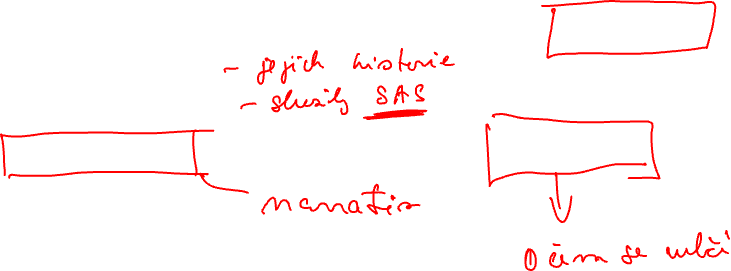 - jejich historie
- služby SAS
narrativ
O čem se mlčí